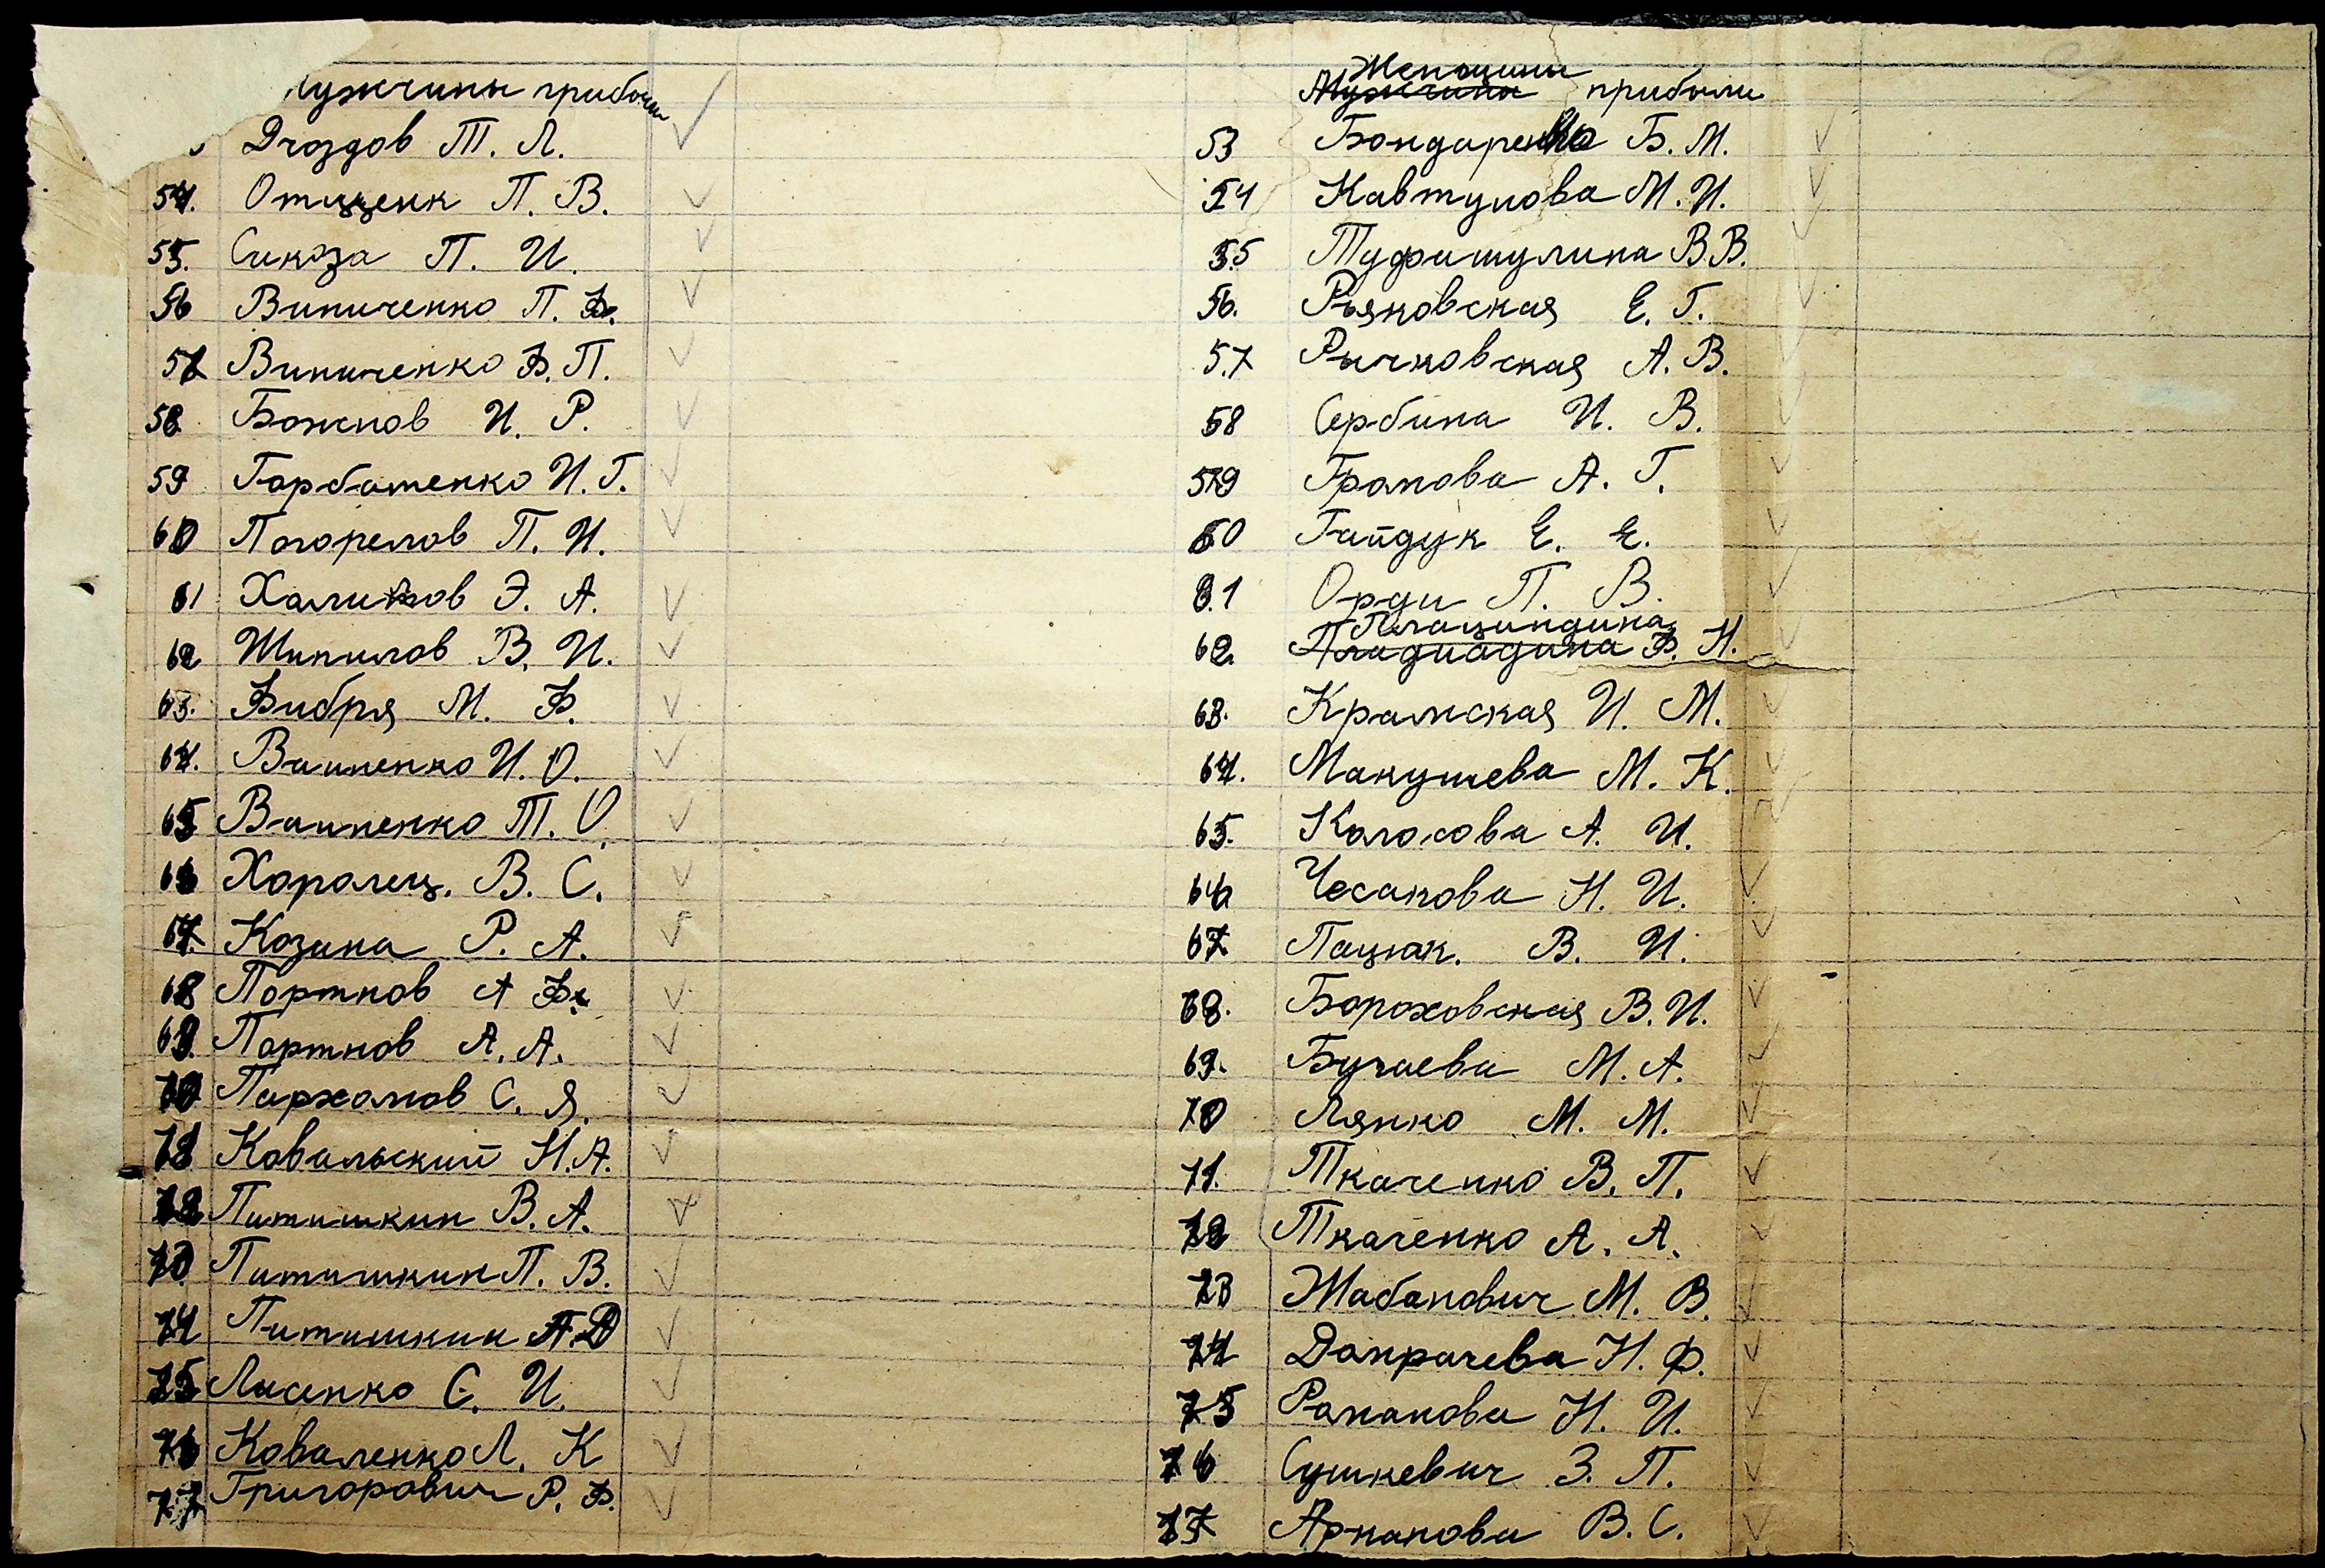 Мужчины прибыли
Дроздов Т. Л.
54. Отщенк П. В.
55. Сикоза П. И.
56 Виниченко П. Ф.
57 Виниченко Ф. П.
58 Божков И. Р.
59 Горбатенко И. Г.
60 Погорелов П. И.
61 Халиков Э. А.
62 Шипилов В. И.
63. Бибря М. Ф.
64. Вашненко И. О.
65 Вашненко Т. О.
66 Хоролец. В. С.
67. Козина Р. А.
68 Портнов А Ф.
69. Портнов А. А.
70 Пархомов С. Я.
71 Ковальский Н. А.
72 Питишкин В. А.
73 Питишкин П. В.
74 Питишкин А. Д
75 Лисенко С. И.
76 Коваленко Л. К
77 Григорович Р. Ф.
Женщины
Мужчины прибыли
53 Бондаренко Б. М.
54 Кавтунова М. И.
55 Туфишулина В. В.
56. Ряковская Е. Г.
57 Рычковская А. В.
58 Сербина И. В.
59 Громова А. Г.
60 Гайдук Е. Е.
61 Орди П. В.
Плациндина
62. Ф. Н.
63. Крамская И. М.
64. Макушева М. К.
65. Колосова А. И.
66 Чесакова Н. И.
67 Пацюк. В. И.
68. Бороховская В. И.
69. Бугаева М. А.
70 Лянко М. М.
71. Ткаченко В. П.
72 Ткаченко А. А.
73 Жабанович М. В.
74 Донрачева Н. Ф.
75 Романова Н. И.
76 Сушкевич З. П.
77 Арканова В. С.